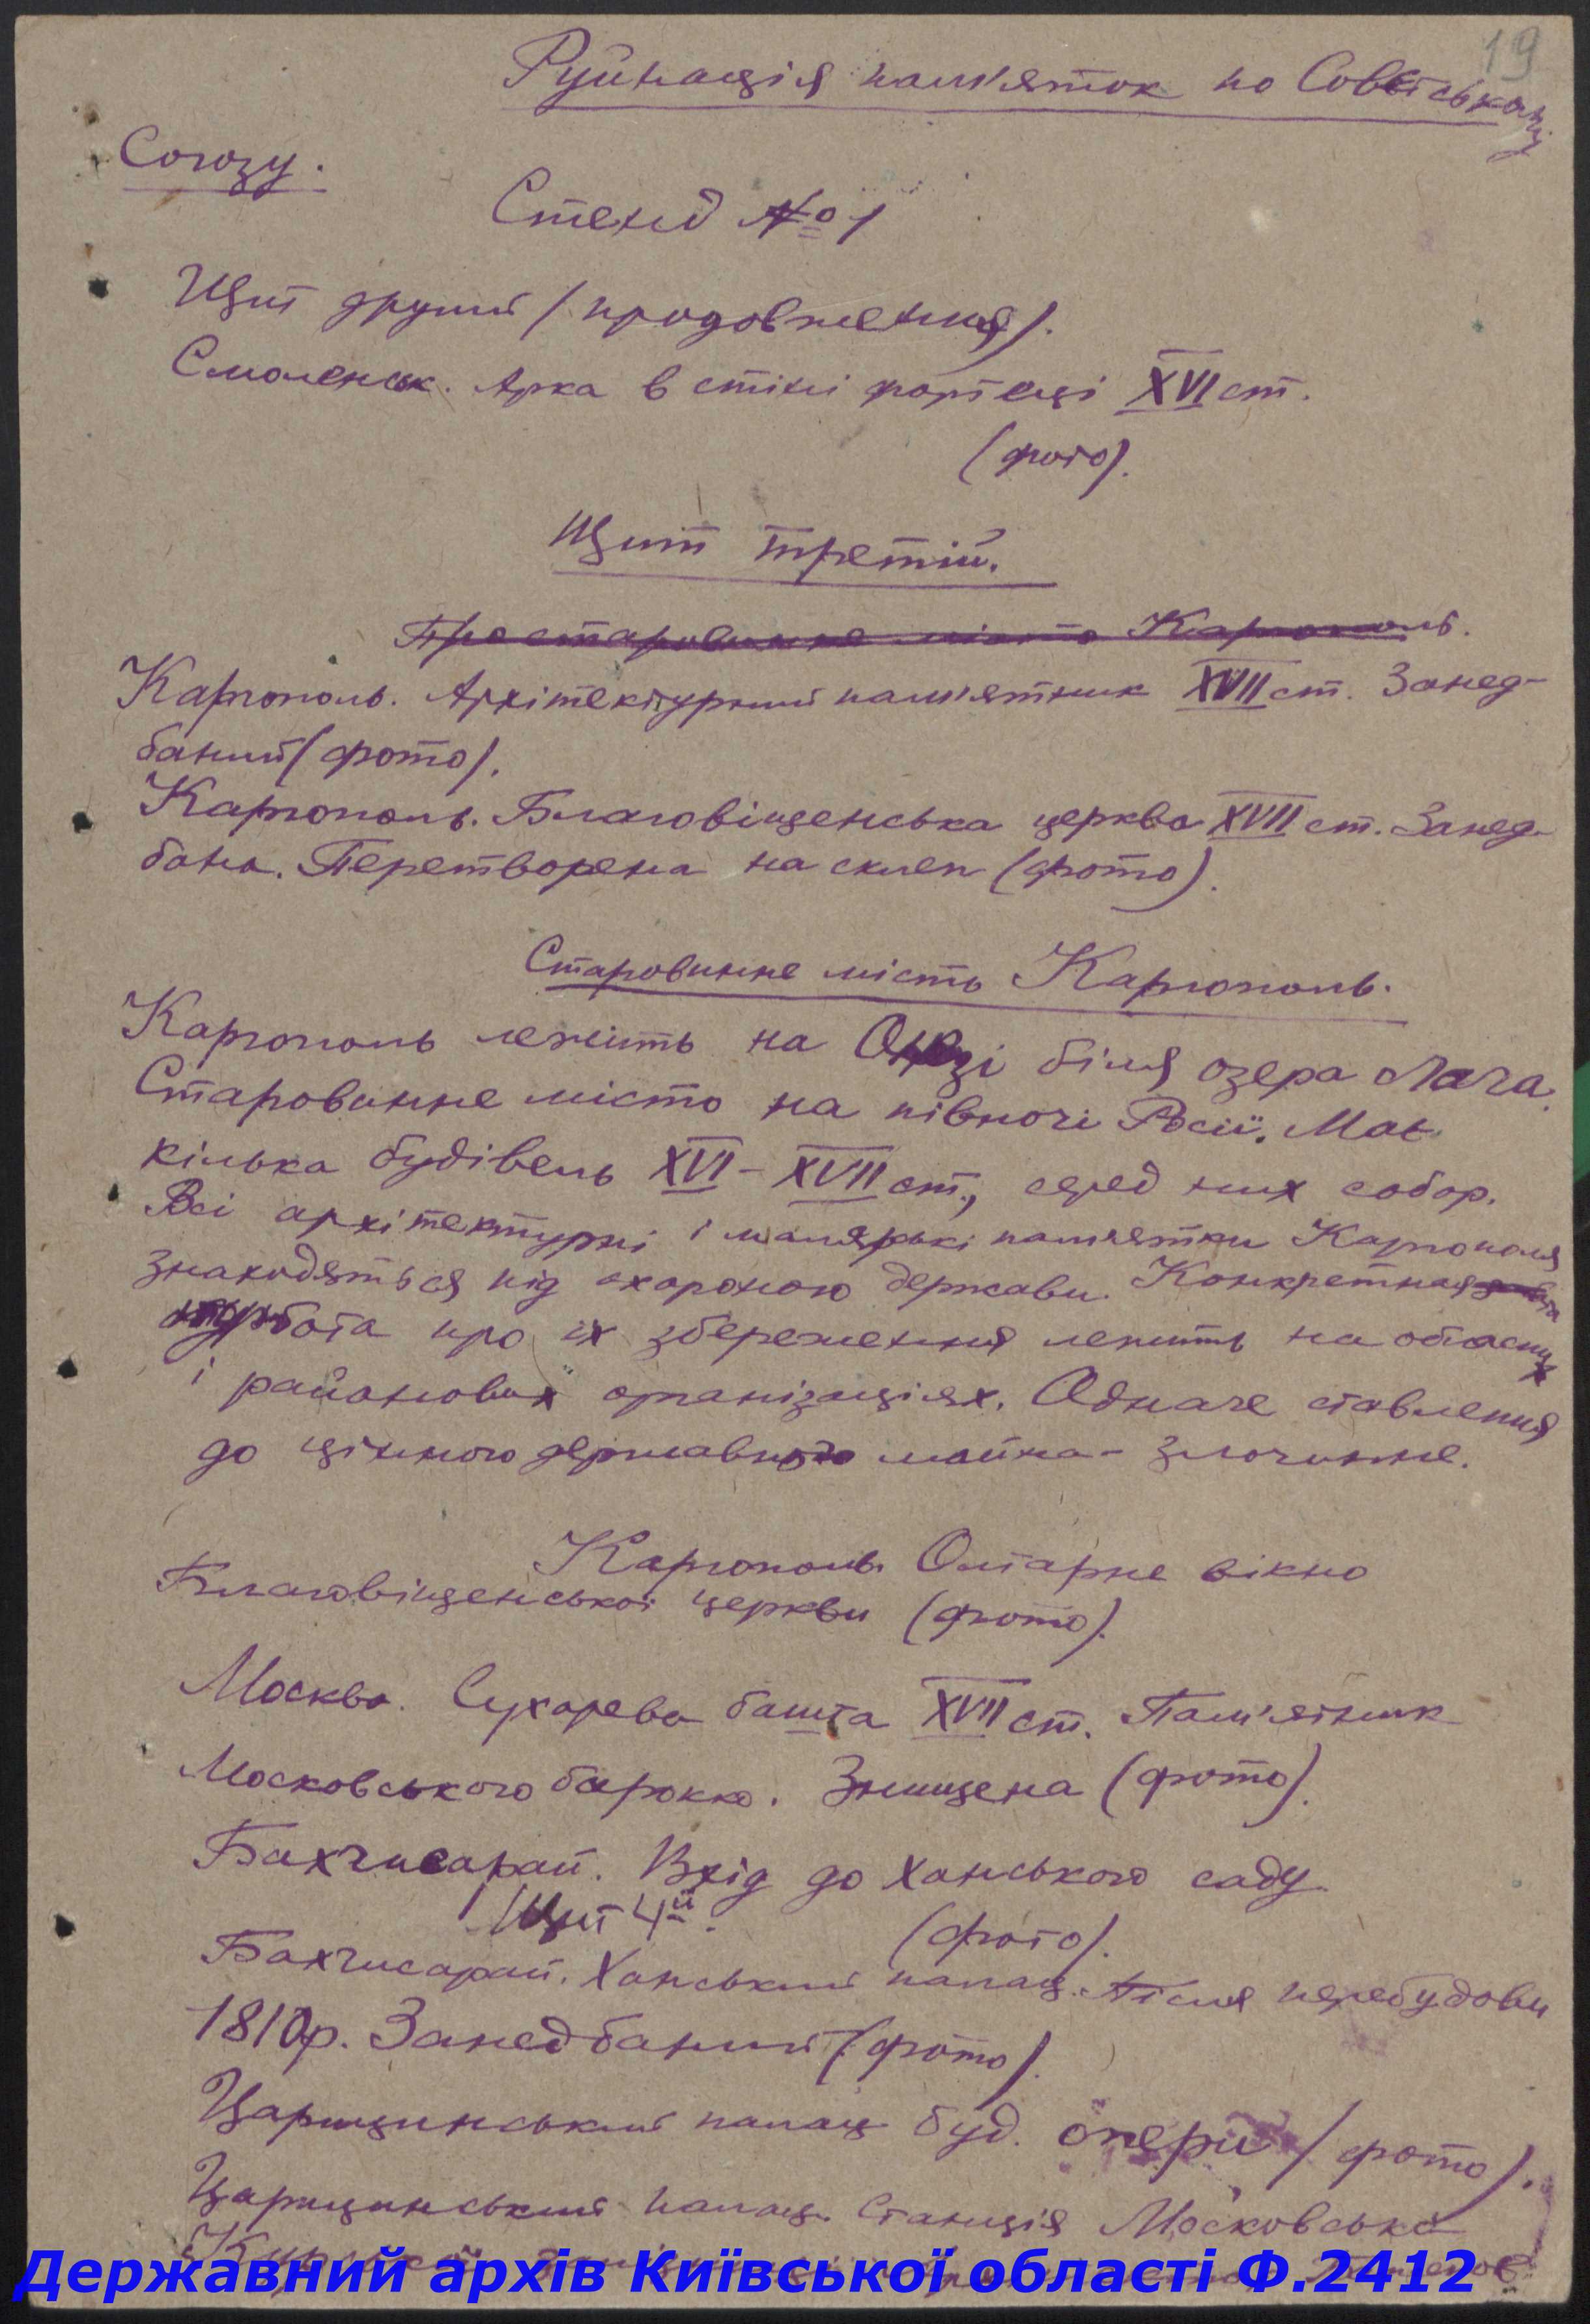 19
Руйнація пам'яток по Совєтському
Союзу.
Стенд №1
Щит другий (продовження).
Смоленськ. Арка в стіні фортеці XVI ст.
(фото).
Щит третій.
Про старовинне місто Каргополь.
Каргополь. Архітектурний пам'ятник XVII ст. Занед-
баний (фото).
Каргополь. Благовіщенська церква XVII ст. Занед-
бана. Перетворена на склеп (фото).
Старовинне мість Каргополь.
Каргополь лежить на Онезі біля озера Лача.
Старовинне місто на півночі Росії. Має
кілька будівель XVI – XVII ст., серед них собор.
Всі архітектурні і малярські памятки Каргополя
знаходяться під охороною держави. Конкретная
турбота про їх збереження лежить на обласних
і районових організаціях. Одначе ставлення
до цінного державного майна – злочинне.
Каргополь. Олтарне вікно
Благовіщенської церкви (фото).
Москва. Сухарева башта XVII ст. Пам'ятник
Московського барокко. Знищена (фото).
Бахчисарай. Вхід до Ханського саду
Щит 4й.
(фото).
Бахчисарай. Ханський палац. Після перебудови
1810р. Занедбаний (фото).
Царицинський палац буд. опери (фото).
Царицинський палац. Станція Московсько
Державний архів Київської області Ф.2412